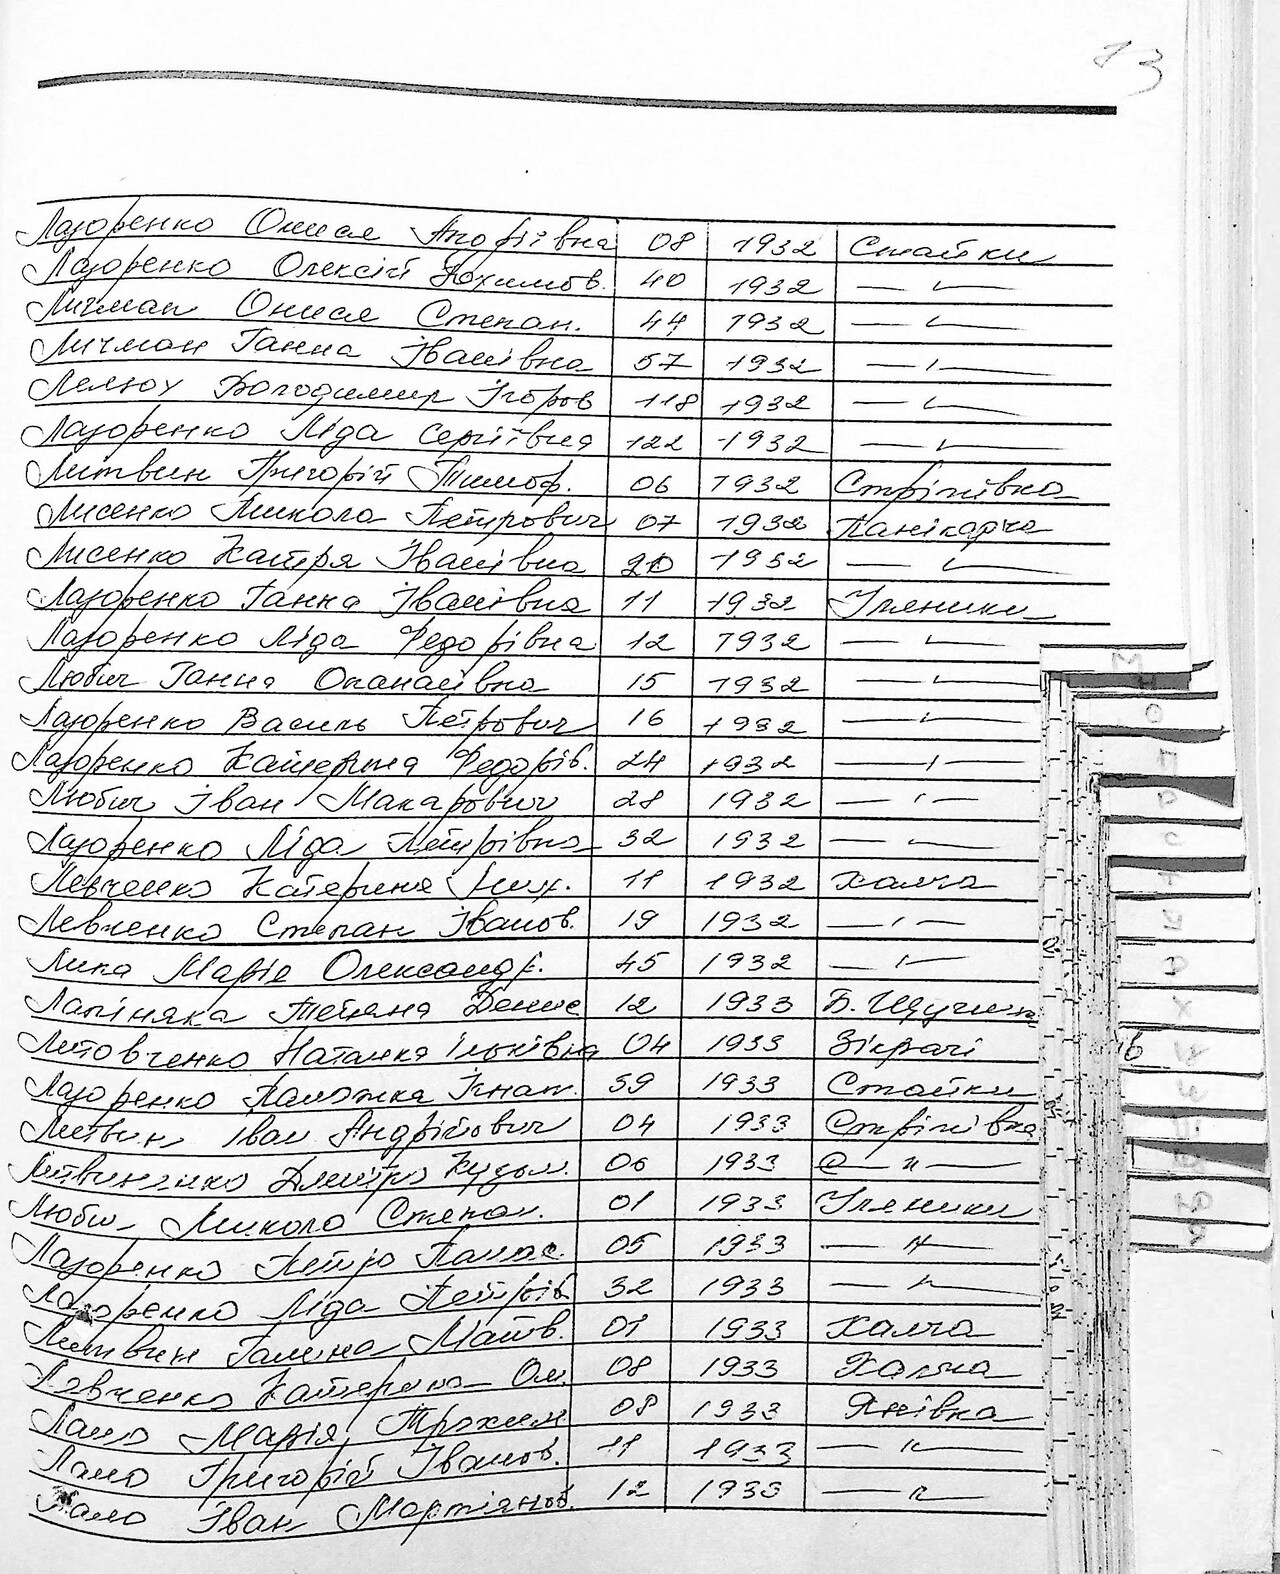 13
Лазоренко Онися Андріївна 08 1932 Стайки
Лазоренко Олексій Юхимов. 40 1932 — " —
Личман Онися Степан. 44 1932 — " —
Личман Ганна Іванівна 57 1932 — " —
Лелюх Володимир Ігоров 118 1932 — " —
Лазоренко Ліда Сергіївна 122 1932 — " —
Литвин Григорій Тимоф. 06 1932 Стрітівка
Лисенко Микола Петрович 07 1932 Панікарча
Лисенко Катря Іванівна 20 1932 — " —
Лазоренко Ганна Іванівна 11 1932 Уляники
Лазоренко Ліда Федорівна 12 1932 — " —
Любич Ганна Опанасівна 15 1932 — " —
Лазоренко Василь Петрович 16 1932 — " —
Лазоренко Катерина Федорів. 24 1932 — " —
Любич Іван Макарович 28 1932 — " —
Лазоренко Ліда Петрівна 32 1932 — " —
Левченко Катерина Мих. 11 1932 Халча
Левченко Степан Іванов. 19 1932 — " —
Липа Марія Олександр. 45 1932 — " —
Тетяна Денис 12 1933 Б.
Литовченко Наталка Ільківна 04 1933 Зікрачі
Лазоренко Палажка Ігнат. 59 1933 Стайки
Литвин Іван Андрійович 04 1933 Стрітівка
Литвиненко Дмитро Кузьм. 06 1933 — " —
Любич Микола Степан. 01 1933 Уляники
Лазоренко Петро Панас. 05 1933 — " —
Лазоренко Ліда Петрів 32 1933 — " —
Литвин Галина Матв. 01 1933 Халча
Левченко Катерина Ом. 08 1933 Халча
Лало Марія Трохим 08 1933 Янівка
Лало Григорій Іванов. 11 1933 — " —
Лало Іван Март'янов. 12 1933 — " —